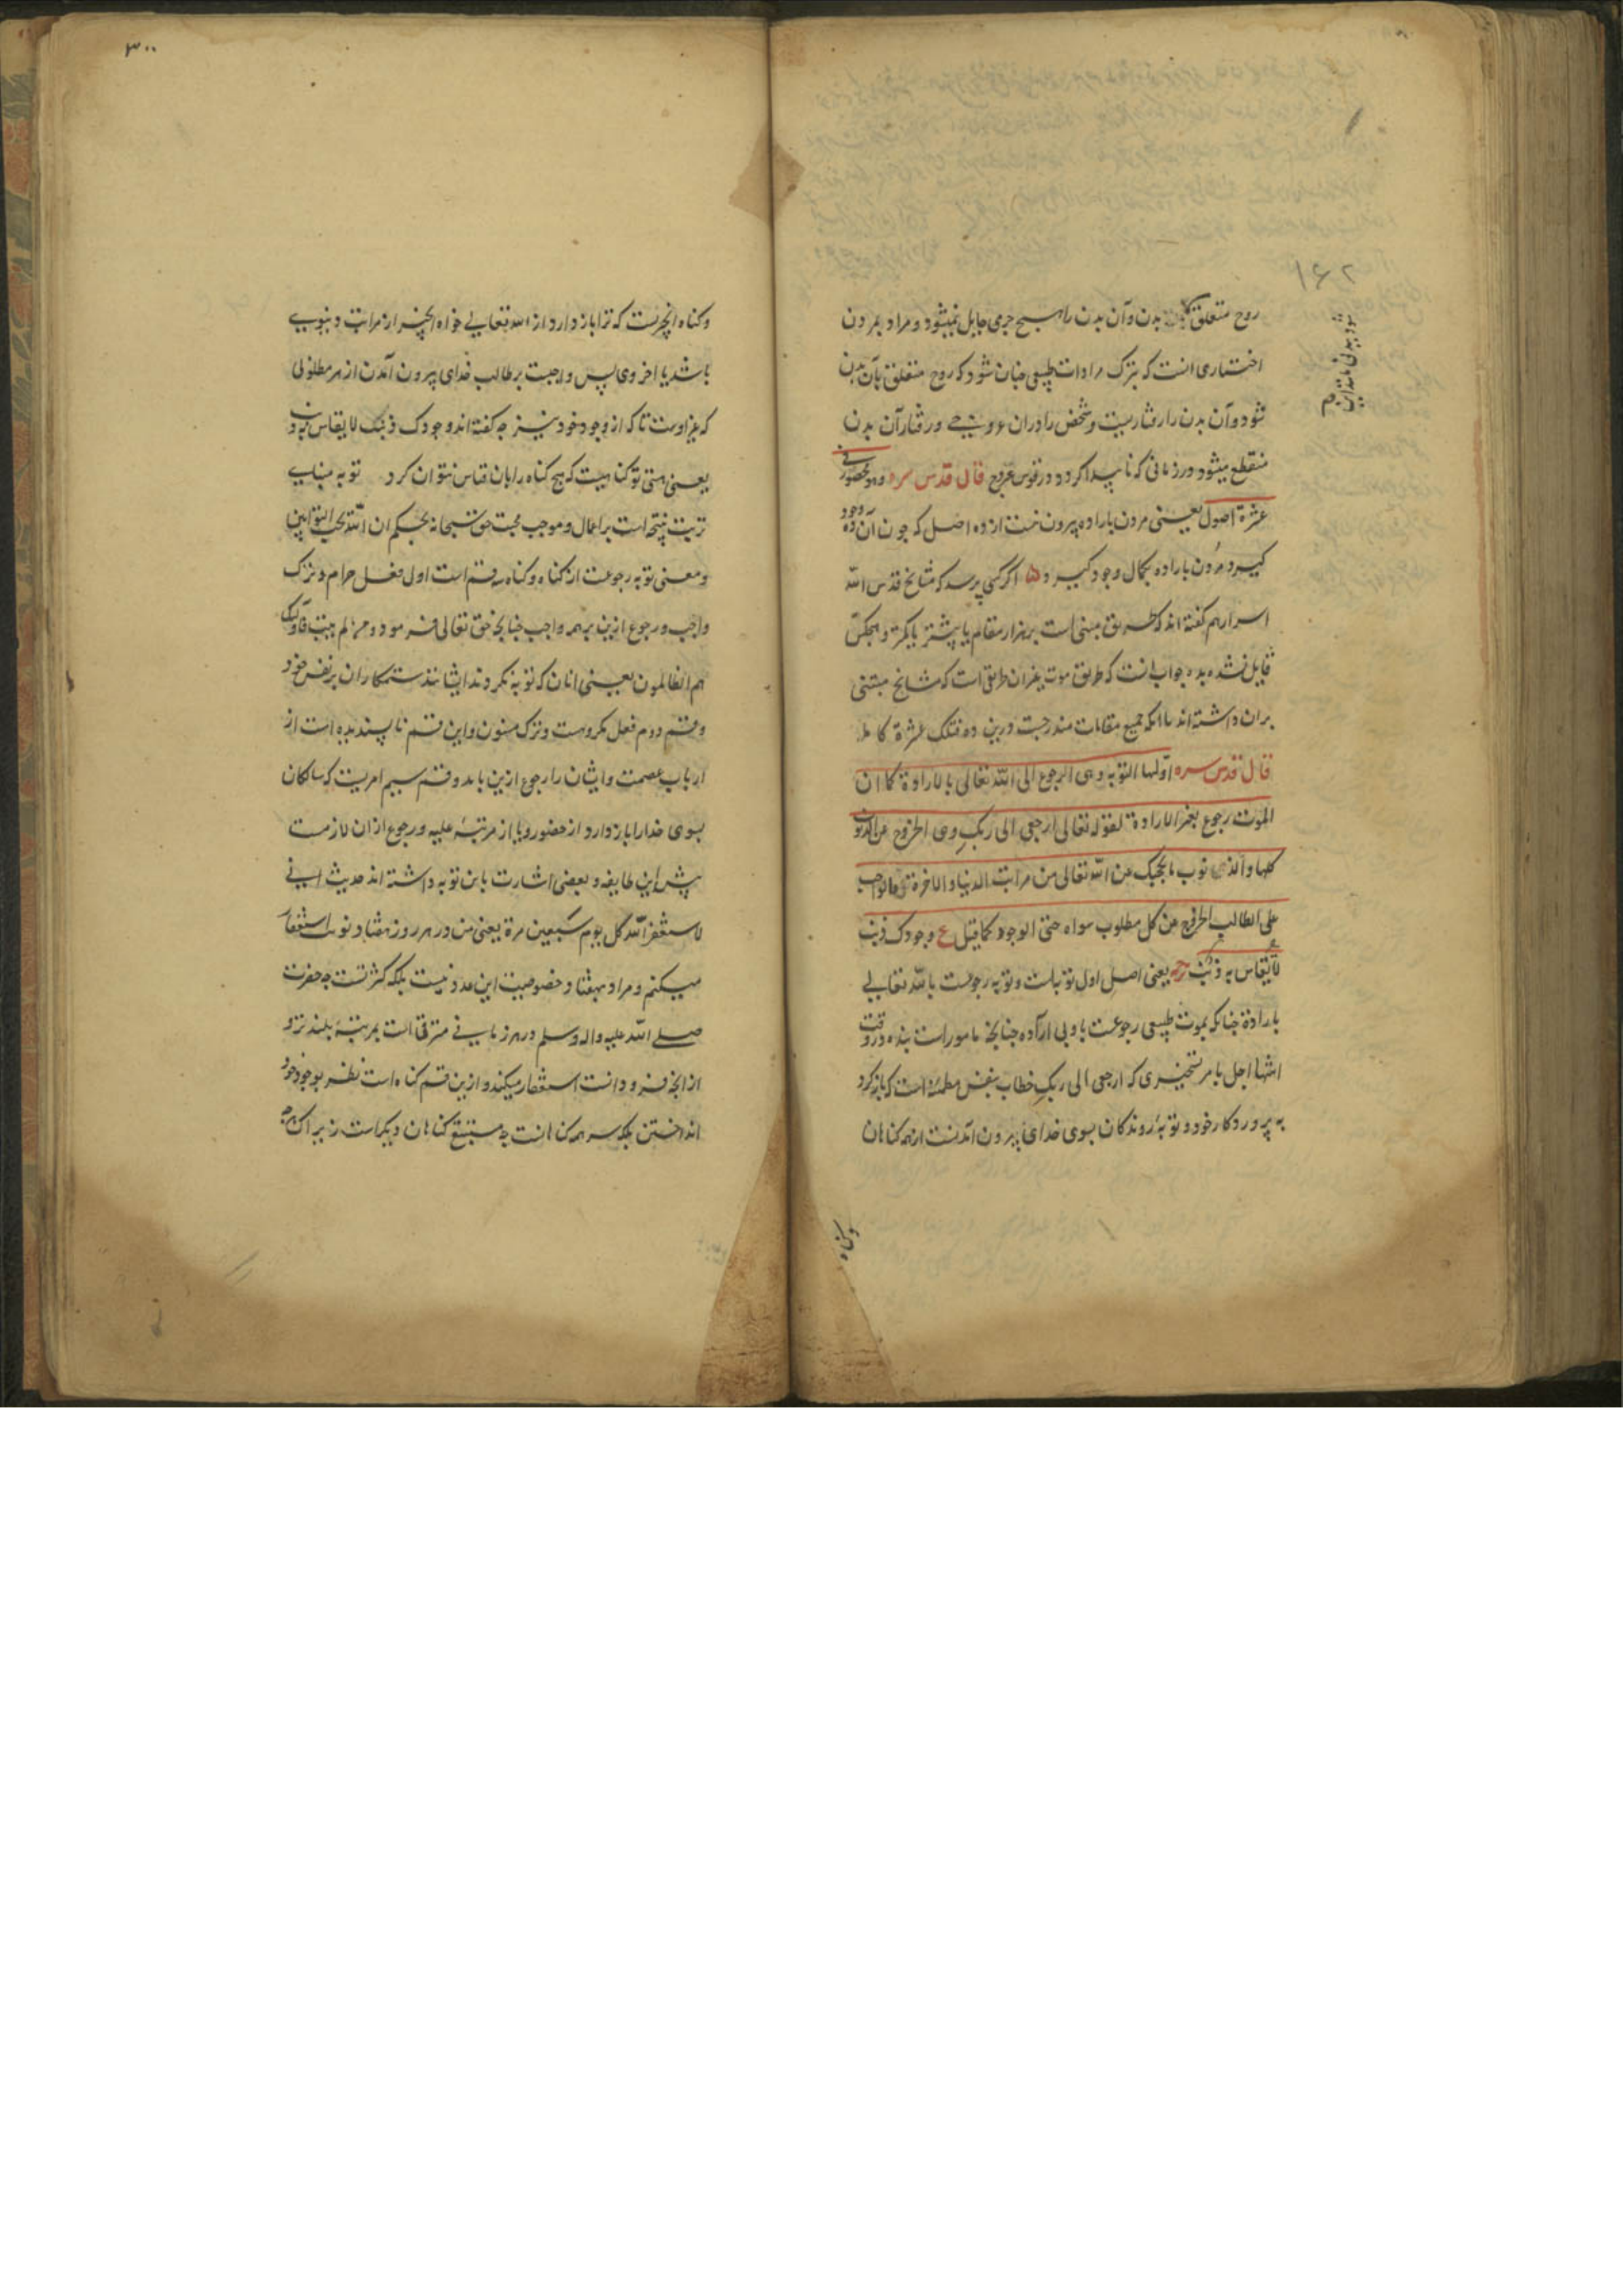 روح متعلق بدن و آن بدن را هیچ جری حایل نمیشود و مراد بمردن
اختیاری انست که بترک مرادات طبیعی چنان شود که روح متعلق بآن بدن
شود و آن بدن را رفتار نیست و شخص را دران عروجی و رفتار آن بدن
منقطع میشود در زمانی که نا پیدا کردد در قوس عروج قال قدس سره وهو محصور فی
عشرة اصول یعنی مردن باراده بیرون نیست از ده اصل که چون آن ده وجود
کیرد مردن باراده بکمال وجود کیرد اکر کسی پرسد که مشایخ قدس الله
اسرارهم کفته اند که طریق مبنی است بر هزار مقام یا بیشتر یا کمتر و هیچکس
قایل نشده بده جواب انست که طریق موت غیر ان طریق است که مشایخ مبتنی
بران داشته اند با انکه جمیع مقامات مندرجست درین ده فتلک عشرة کاملة
قال قدس سره اولها التوبه وهی الرجوع الی الله تعالی بالارادة کما ان
الموت رجوع بغیر الارادة لقوله تعالی ارجعی الی ربک وهی الخروج عن الذنوب
کلها والذنوب ما یحجبک من الله تعالی من مراتب الدنیا والاخرة فالواجب
علی الطالب الخروج عن کل مطلوب سواه حتی الوجود کما قیل ع وجودک ذنب
لا یقاس به ذنب یعنی اصل اول توبه است و توبه رجوعست بالله تعالی
بارادة چنانکه بموت طبیعی رجوعست باو بی اراده چنانچه ماموراست بنده در وقت
انتها اجل بامر تسخیری که ارجعی الی ربک خطاب بنفس مطمئنه است که بازکرد
به پروردکار خود و توبهٔ روندکان بسوی خدای بیرون آمدنست از همه کناهان
وکناه
۱۶۲
۳۰۰
وکناه انچیزست که ترا باز دارد از الله تعالی خواه انچیز از مراتب دنیوی
باشد یا اخروی پس واجبست بر طالب خدای بیرون آمدن از هر مطلوبی
که غیر اوست تا که از وجود خود نیز چه کفته اند وجودک ذنب لا یقاس به ذنب
یعنی هستی تو کناهیست که هیچ کناه را بان قیاس نتوان کرد توبه مبنای
ترتیب نتیجه است بر اعمال و موجب محبت حق سبحانه بحکم ان الله یحب التوابین
و معنی توبه رجوعست از کناه و کناه سه قسم است اول فعل حرام و ترک
واجب و رجوع ازین بر همه واجب چنانچه حق تعالی فرموده ومن لم یتب فاولئک
هم الظالمون یعنی انان که توبه نکردند ایشانند ستمکاران بر نفس خود
و قسم دوم فعل مکروهست و ترک مسنون و این قسم ناپسندیده است از
ارباب عصمت و ایشان را رجوع ازین باید و قسم سیم امریست که سالکان
بسوی خدا را باز دارد از حضور و یا از مرتبهٔ علیه و رجوع ازان لازمست
پیش این طایفه و بعضی اشارت باین توبه داشته اند حدیث انی
لاستغفر الله کل یوم سبعین مرة یعنی من در هر روز هفتاد نوبت استغفار
میکنم و مراد بهفتاد خصوصیت این عدد نیست بلکه کثرتست چه حضرت
صلی الله علیه واله وسلم در هر زمانی مترقی است بمرتبهٔ بلندتر و
از انچه فرود است استغفار میکند و ازین قسم کناه است نظر بوجود خود
انداختن بلکه سر همه کناهانست چه مستتبع کناهان دیکراست زیراکه